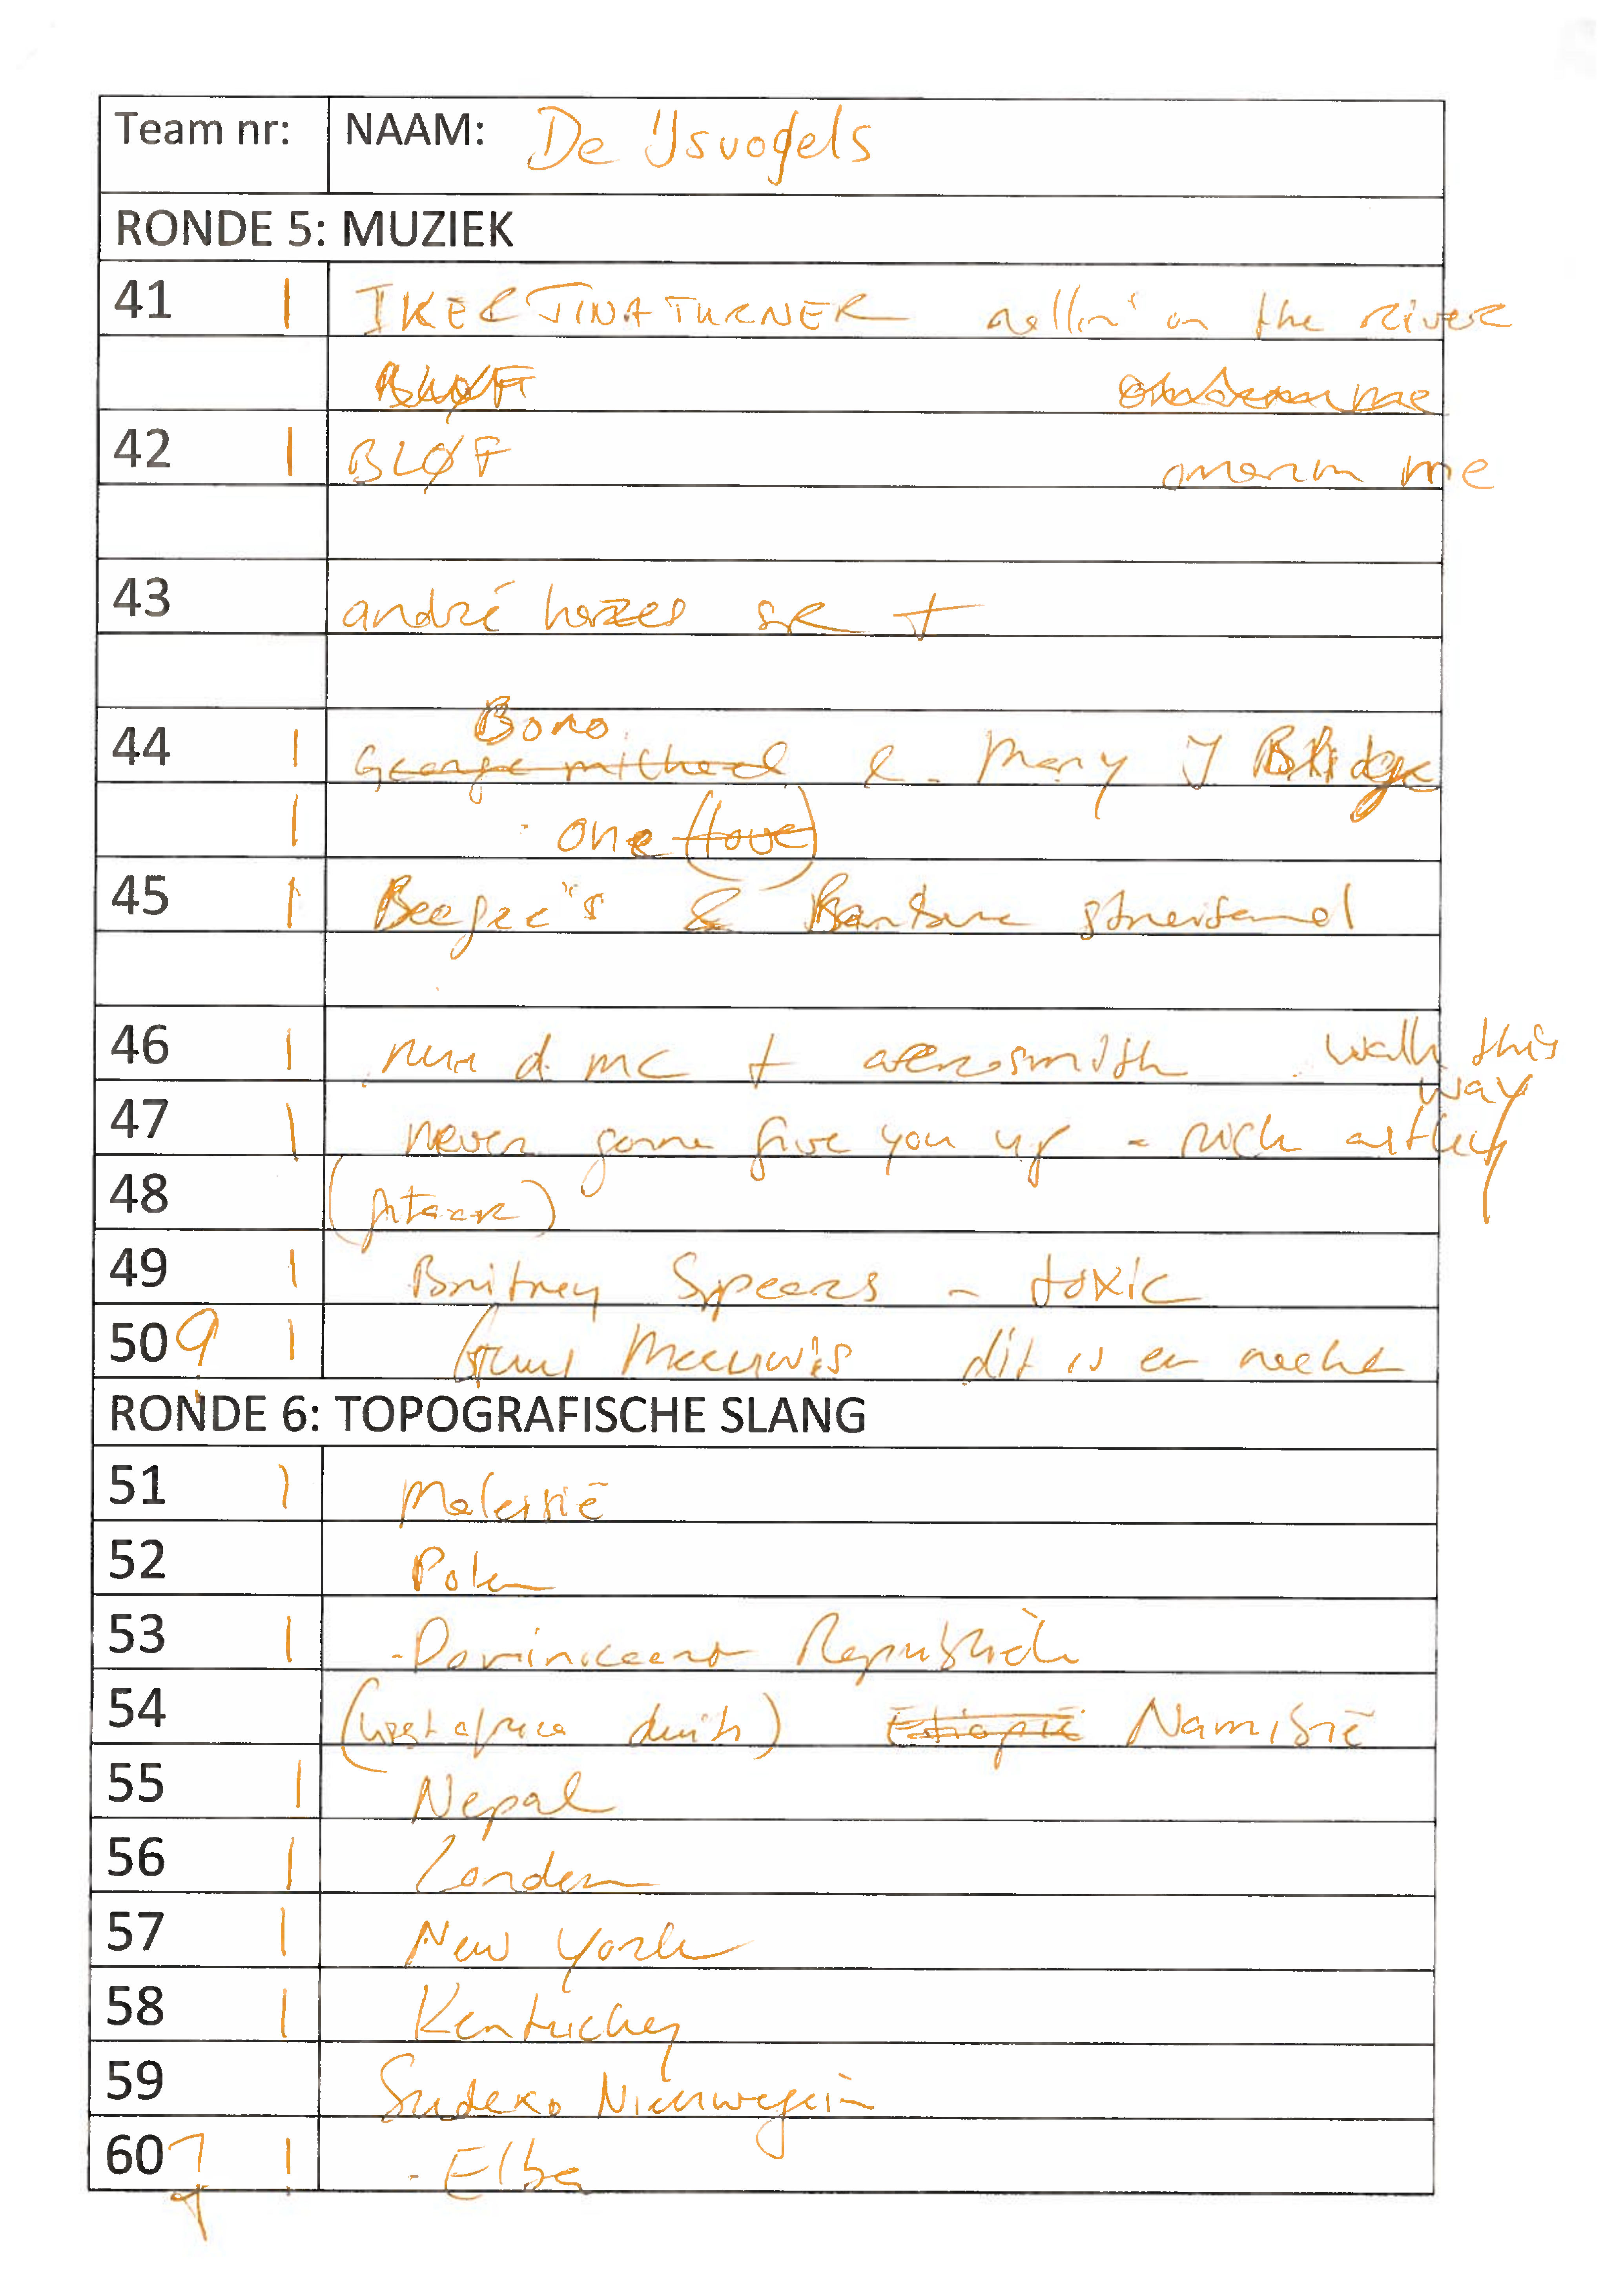 Team nr: NAAM: De IJsvogels
RONDE 5: MUZIEK
41 | IKE & TINA TURNER rollin' on the river
BLØF
42 | BLØF omarm me
43 andré hazes SR +
Bono
44 | George michael & Mary J Blidge
| one (love)
45 | Beegee's & Barbara streisand
46 | run d. mc + aerosmith walk this
way
47 | never gonna give you up - rick astley
48
49 | Britney Spears - toxic
50 9 | Guus Meeuwis dit is en
RONDE 6: TOPOGRAFISCHE SLANG
51 | Maleisië
52 Polen
53 | - Dominicaans Republiek
54 (west africa duits) Etiopië Namibië
55 | Nepal
56 | Londen
57 | New York
58 | Kentuckey
59 Nieuwegein
60 7 | - Elba